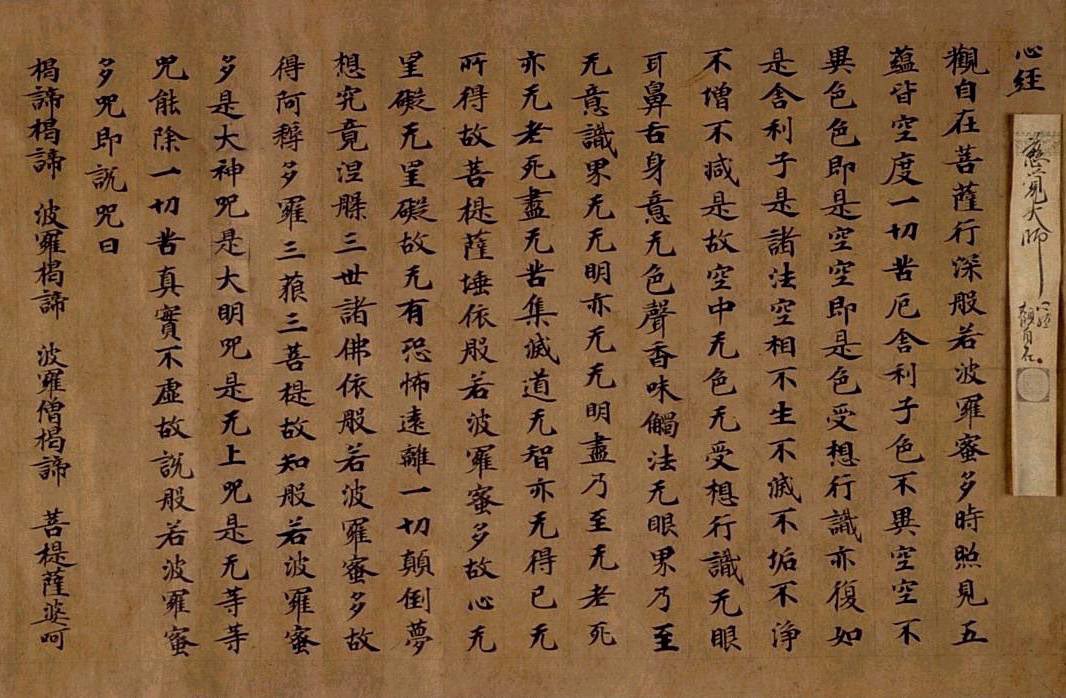 心経
慈覚大師
觀自在菩薩行深般若波羅蜜多時照見五
蘊皆空度一切苦厄舍利子色不異空空不
異色色即是空空即是色受想行識亦復如
是舍利子是諸法空相不生不滅不垢不浄
不增不減是故空中无色无受想行識无眼
耳鼻舌身意无色聲香味觸法无眼界乃至
无意識界无无明亦无无明盡乃至无老死
亦无老死盡无苦集滅道无智亦无得已无
所得故菩提薩埵依般若波羅蜜多故心无
罣礙无罣礙故无有恐怖遠離一切顛倒夢
想究竟涅槃三世諸佛依般若波羅蜜多故
得阿耨多羅三藐三菩提故知般若波羅蜜
多是大神咒是大明咒是无上咒是无等等
咒能除一切苦真實不虛故說般若波羅蜜
多咒即說咒曰
揭諦揭諦 波羅揭諦 波羅僧揭諦 菩提薩婆呵